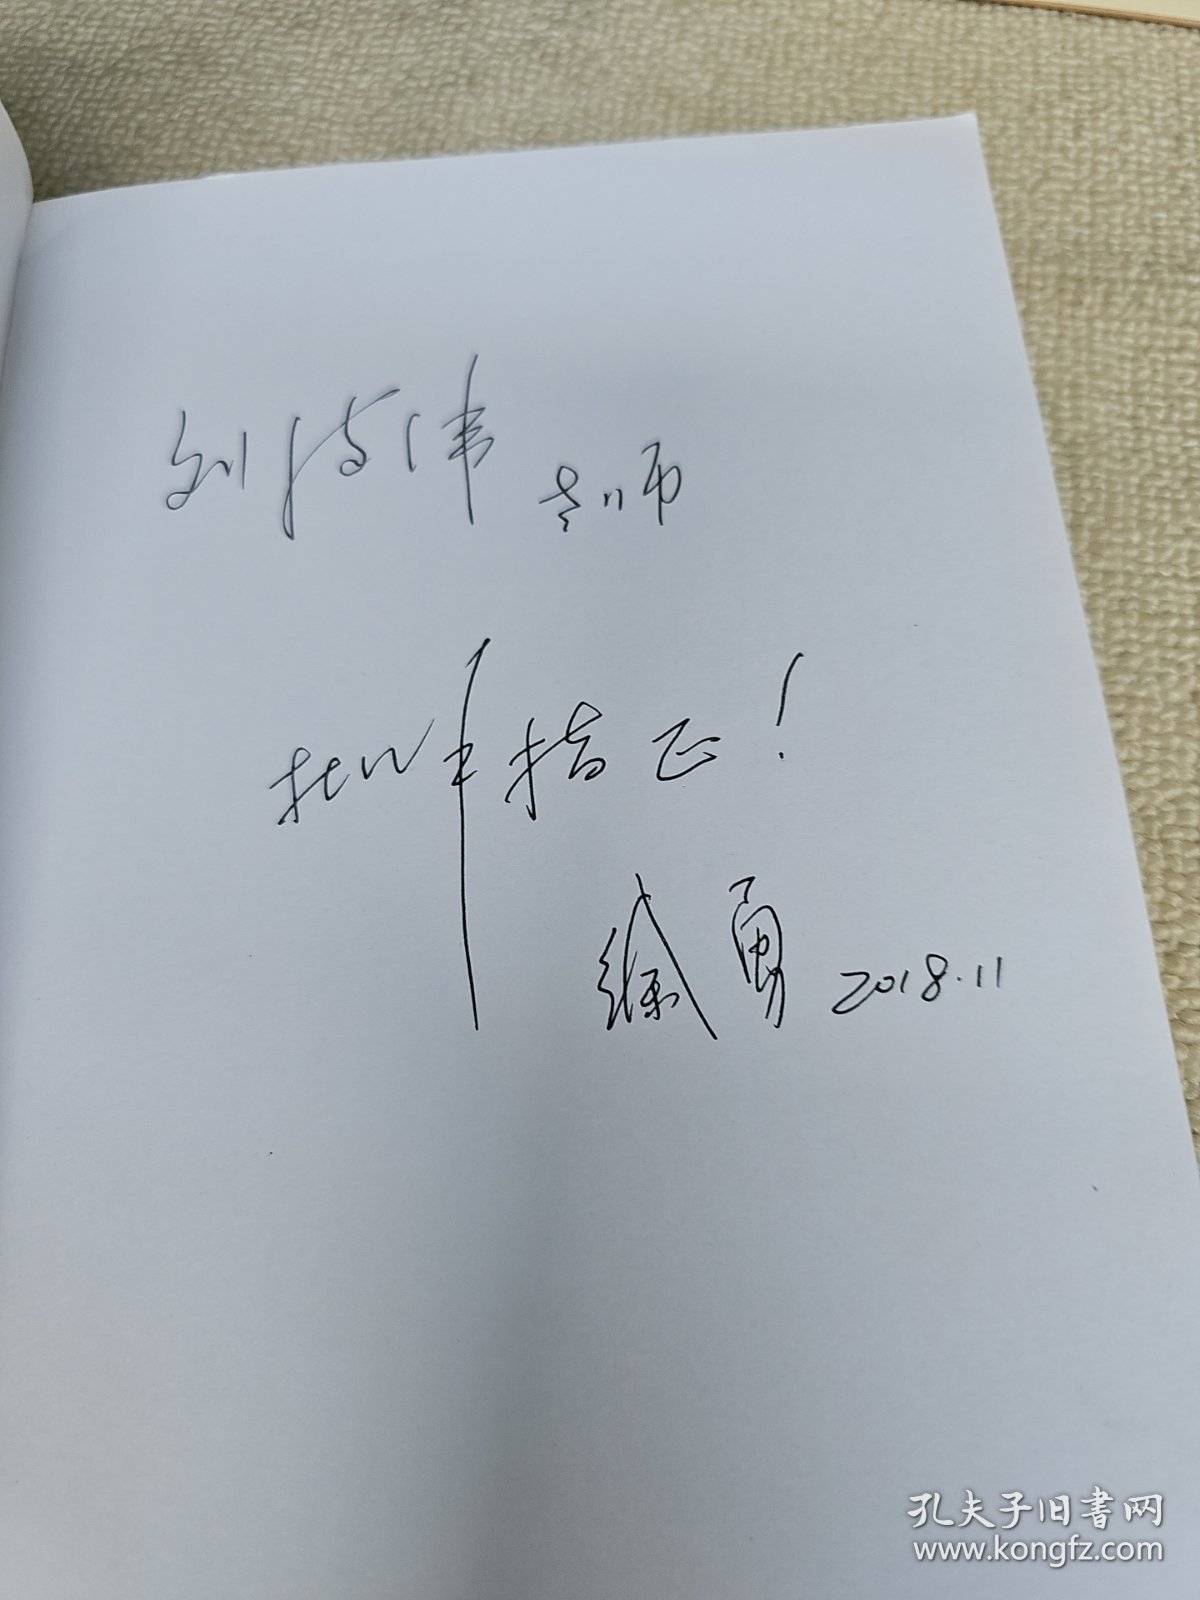 刘德伟老师
批评指正！
徐勇 2018.11
孔夫子旧书网
www.kongfz.com